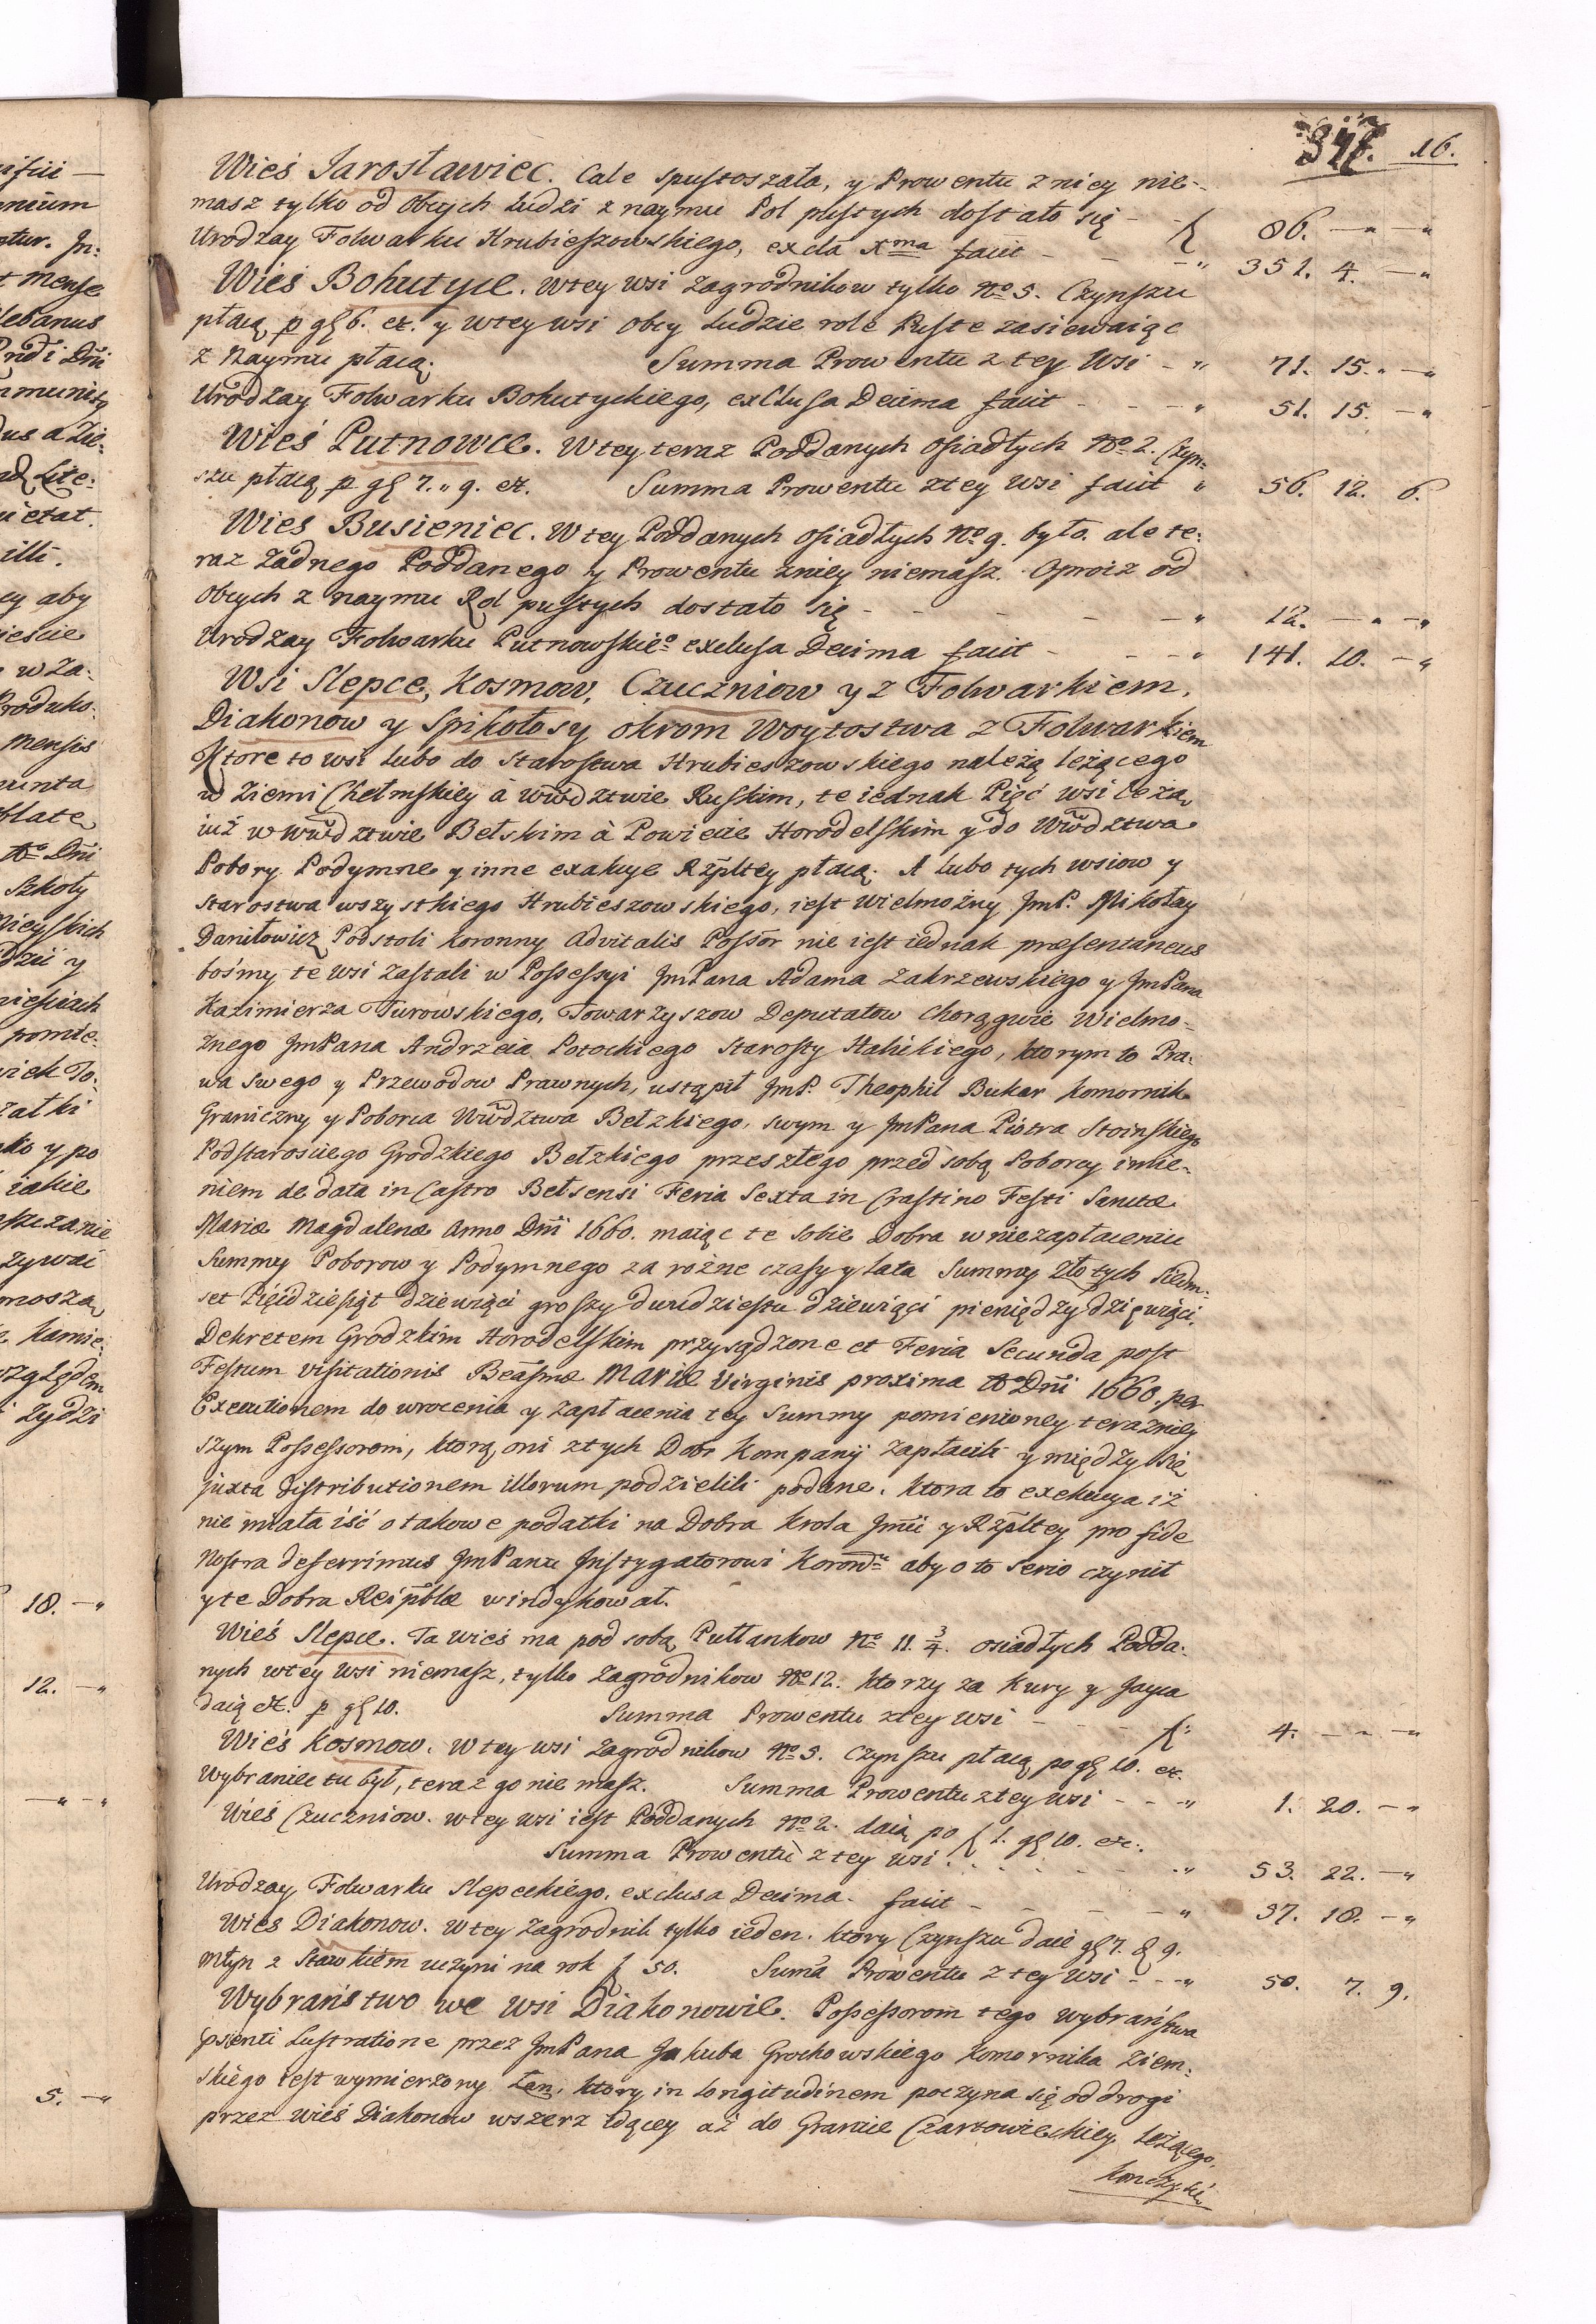 347. 16.
Wieś Jarosławiec. Cale spustoszała, y Prowentu z niey nie-
masz tylko od Obcych Ludzi z naymu Pol pustych dostało się - - ƒ 86. —"—"
Urodzay Folwarku Hrubieszowskiego, excla Xma facit - - -" 351. 4. —"
Wieś Bohutyce. W tey wsi Zagrodnikow tylko No 5. Czynszu
płacą p gʃ 6. et. y w tey wsi obcy Ludzie role Puste zasiewaiąc
z Naymu płacą. Summa Prowentu z tey Wsi -" 71. 15." —"
Urodzay Folwarku Bohutyckiego, exclusa Decima facit - - -" 51. 15. —"
Wieś Putnowce. W tey teraz Poddanych Osiadłych No 2. Czyn:
szu płacą p gʃ 7." 9. et. Summa Prowentu z tey wsi facit " 56. 12. 6.
Wieś Busieniec. W tey Poddanych osiadłych No 9. było. ale te:
raz Żadnego Poddanego y Prowentu zniey niemasz. Oprocz od
Obcych z naymu Rol pustych dostało się - - - - -" 12. —"—"
Urodzay Folwarku Putnowskieo exclusa Decima facit - - -" 141. 10. —"
Wsi Slepce, Kosmow, Czuczniow y z Folwarkiem,
Diakonow y Spikołosy okrom Woytostwa z Folwarkiem
Ktore to wsi lubo do Starostwa Hrubieszowskiego należą leżącego
w Ziemi Chełmskiey à wwdztwie Ruskim, te iednak Pięć wsi leżą
iuż w wwdztwie Bełskim à Powiecie Horodelskim y do Wwdztwa
Pobory Podymne y inne exakcye Rzpltey płacą. A lubo tych wsiow y
Starostwa wszystkiego Hrubieszowskiego, iest Wielmożny JmP. Mikołay
Daniłowicz Podstoli Koronny Advitalis Possor nie iest iednak præsentaneus
bośmy te wsi zastali w Possessyi JmPana Adama Zakrzewskiego y JmPana
Kazimierza Turowskiego, Towarzyszow Deputatow Chorągwie Wielmo-
żnego JmPana Andrzeia Potockiego Starosty Halickiego, ktorym to Pra:
wa swego y Przewodow Prawnych, ustąpił JmP. Theophil Bukar Komornik
Graniczny y Poborca Wwdztwa Bełzkiego, swym y JmPana Piotra Stoinskiego
Podstarosciego Grodzkiego Bełzkiego przeszłego przed sobą Poborcy imie-
niem de data in Castro Bełsensi Feria Sexta in Crastino Festi Sanctæ
Mariæ Magdalenæ Anno Dni 1660. maiąc te sobie Dobra w niezapłaceniu
Summy Poborow y Podymnego za rożne czasy y lata Summy złotych Siedm-
set Pięćdziesiąt dziewiąci groszy dwudziestu dziewiąci pieniędzy dziewiąci.
Dekretem Grodzkim Horodelskim przysądzone et Feria Secunda post
Festum visitationis Beasmæ Mariæ Virginis proxima Ao Dni 1660. per
Executionem do wrocenia y zapłacenia tey Summy pomienioney teraźniey
szym Possessorom, ktorą oni z tych Dobr Kompanij zapłacili y między się
juxta distributionem illorum podzielili podane. Ktora to exekucya iż
nie miała iść o takowe podatki na Dobra Krola Jmci y Rzpltey pro fide
Nostra deferrimus JmPanu Jnstygatorowi Koronu aby o to serio czynił
y te Dobra Reipblæ windykował.
Wieś Slepce. Ta wieś ma pod sobą Pułłankow No 11. 3/4. osiadłych Podda:
nych w tey wsi niemasz, tylko Zagrodnikow No 12. Ktorzy za Kury y Jayca
daią et. p gʃ 10. Summa Prowentu z tey wsi - - - - ƒ: 4. —"—"
Wieś Kosmow. W tey wsi Zagrodnikow No 5. Czynszu płacą po gʃ 10. et.
Wybraniec tu był, teraz go nie masz. Summa Prowentu z tey wsi - - -" 1. 20. —"
Wieś Czuczniow. w tey wsi iest Poddanych No 2. daią po ƒ 1. gʃ 10. etc.
Summa Prowentu z tey wsi - - - - -" 53. 22. —"
Urodzay Folwarku Slepeckiego, exclusa Decima. facit - - - -" 37. 18. —"
Wieś Diakonow. W tey Zagrodnik tylko ieden. ktory Czynszu daie gʃ 7. & 9.
Młyn z Stawkiem uczyni na rok ƒ 50. Suma Prowentu z tey wsi - - -" 50. 7. 9.
Wybraństwo we wsi Diakonowie. Possessorom tego wybraństwa
psenti Lustratione przez JmPana Jakuba Grochowskiego Komornika Ziem:
skiego iest wymierzony Łan, ktory in longitudinem poczyna się od drogi
przez wieś Diakonow wszerz idącey aż do Granic Czartowieckiey leżącego,
kończy się